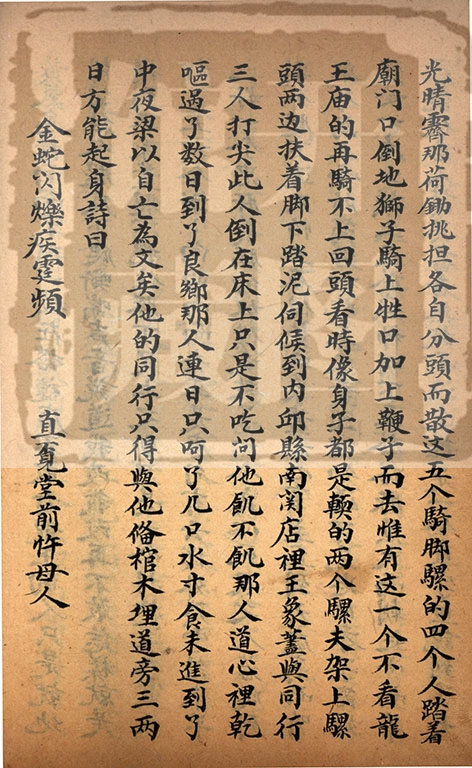 光晴霽那荷鋤挑担各自分頭而散这五个騎脚騾的四个人踏着
廟门口倒地獅子騎上牲口加上鞭子而去惟有这一个不看龍
王庙的再騎不上回頭看時像身子都是輭的两个騾夫架上騾
頭两边扶着脚下踏泥伺候到内邱縣南関店裡王象蓋與同行
三人打尖此人倒在床上只是不吃问他飢不飢那人道心裡乾
嘔過了数日到了良鄉那人連日只呵了几口水寸食未進到了
中夜梁以自亡為文矣他的同行只得與他俻棺木埋道旁三两
日方能起身詩曰
金蛇闪爍疾霆頻 直寬堂前忤母人